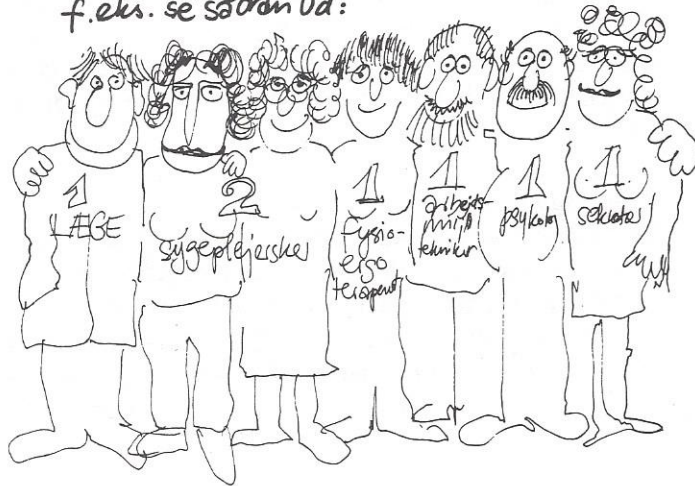 f.eks. se sådan ud:
1
LÆGE
2
sygeplejersker
1
fysio-
ergo
terapeut
1
arbejds-
miljø
tekniker
1
psykolog
1
sekretær